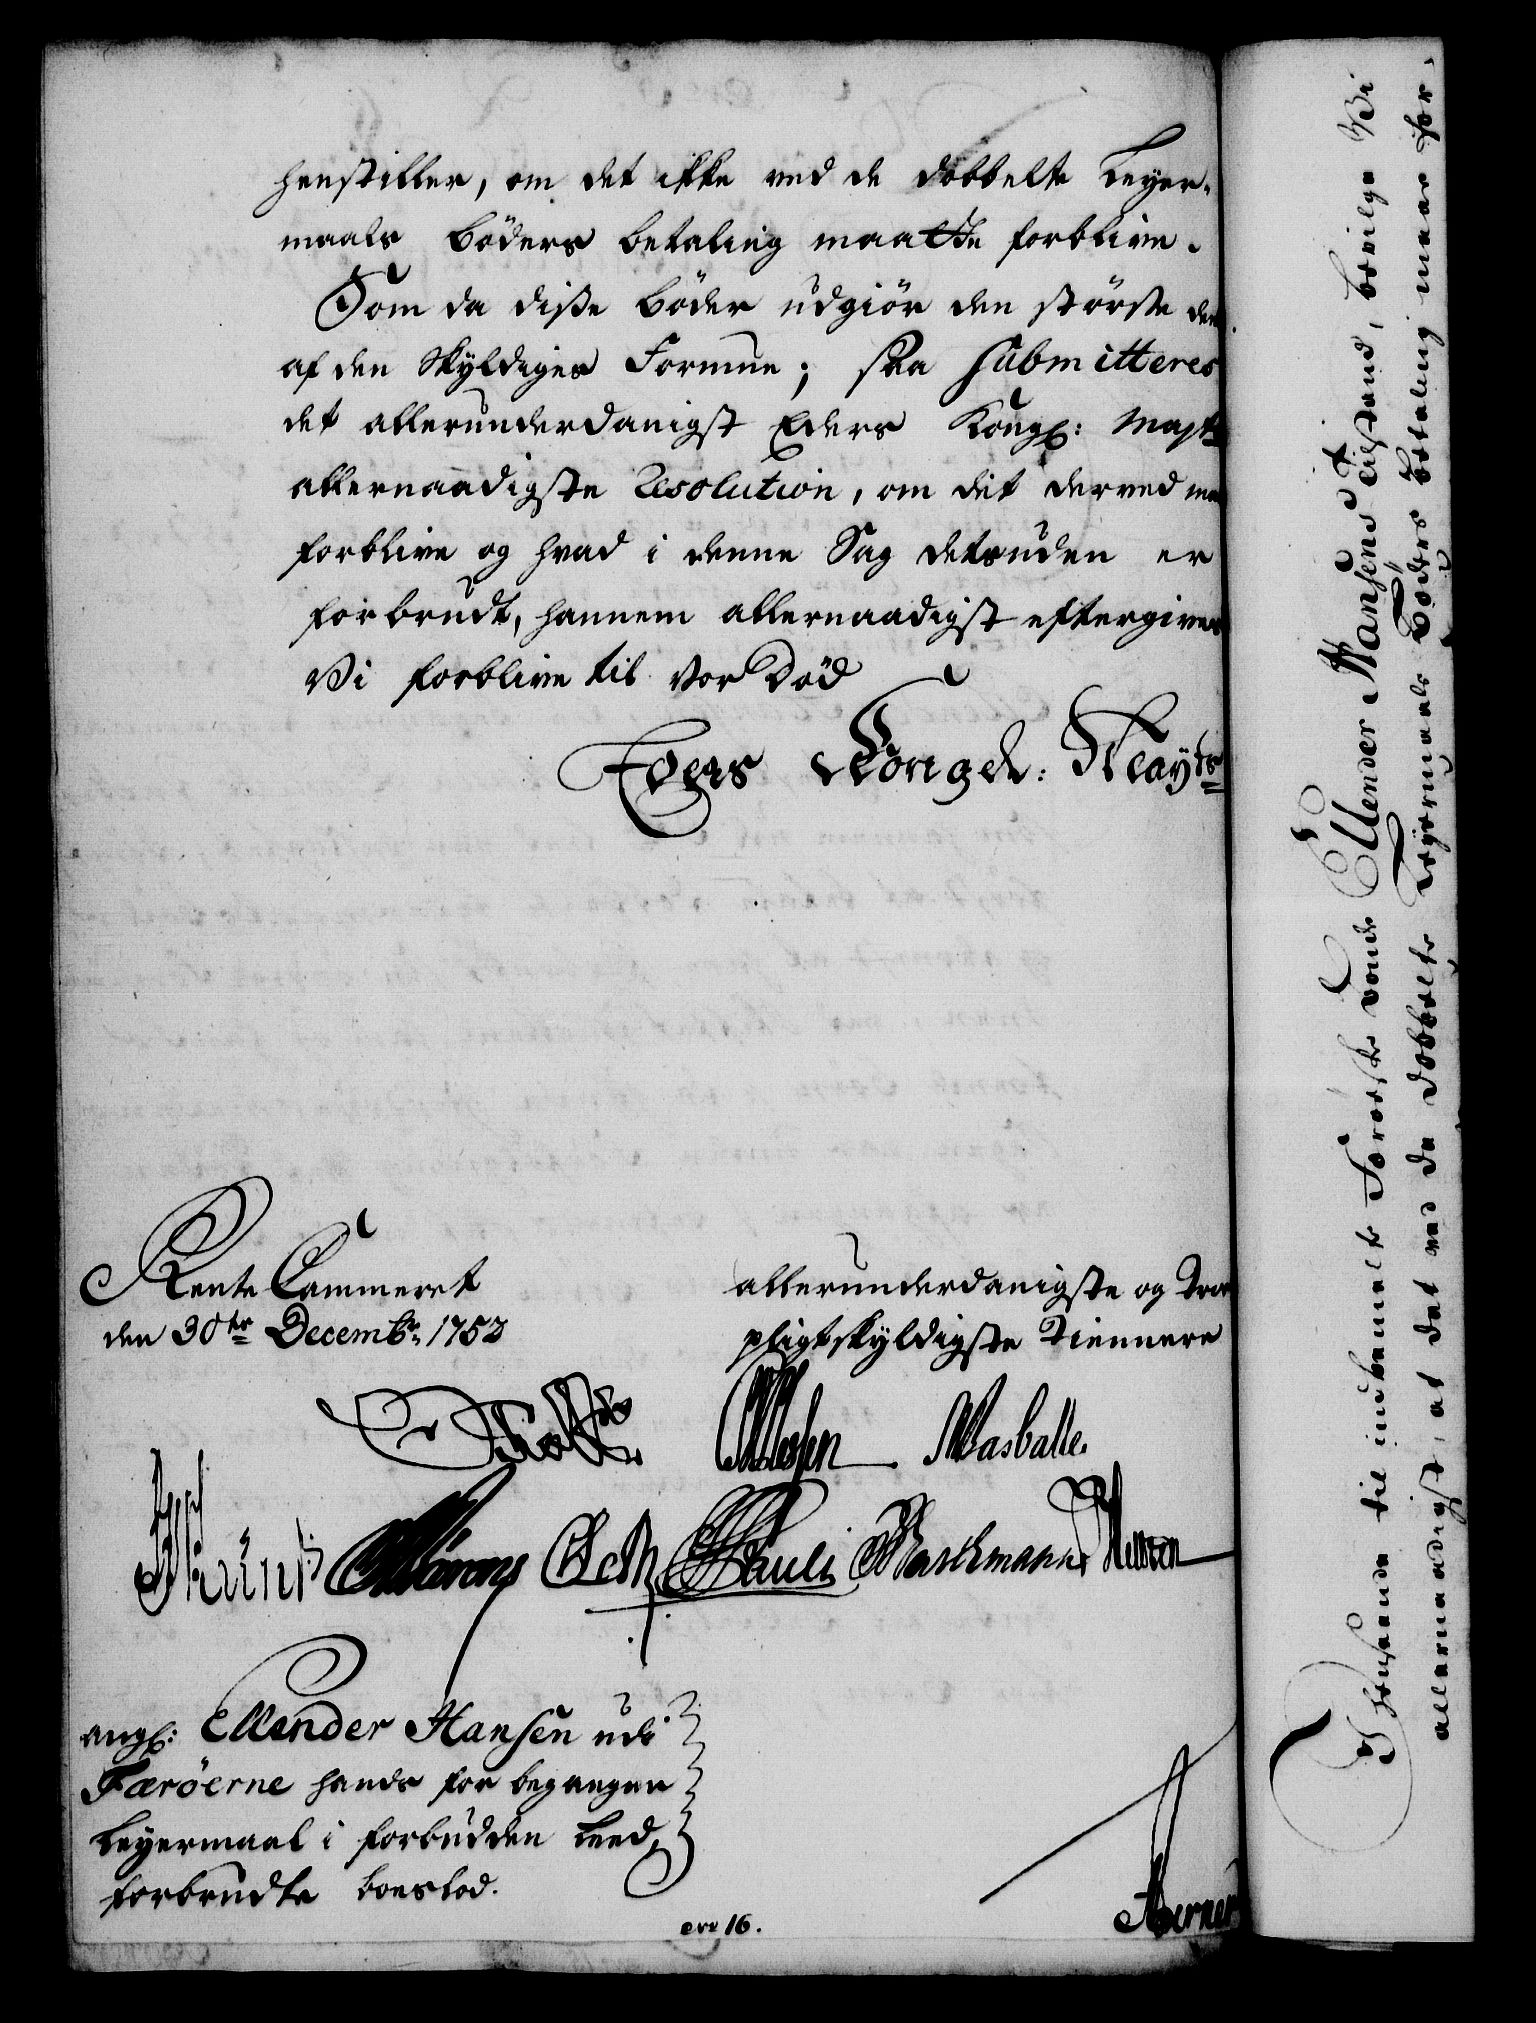 henstiller, om det ikke ved de dobbelte Leyer-
maals Böders betaling maatte forblive.
Som da diße Böder udgiör den störste deel
af den Skyldiges Formue; saa submitteres
det allerunderdanigst Eders Kongl: Mayts
allernaadigste Resolution, om det derved maa
forblive og hvad i denne Sag desuden er
forbrudt, hannem allernaadigst eftergives
Vi forblive til Vor Död
Eders Kongel: Mayts
Rente Cammeret
den 30te Decembr: 1752
allerunderdanigste og Troe
pligtskyldigste Tiennere
Masballe.
Pauli
angl: Ellender Hansen udi
Færöerne hands for begangen
Leyermaal i forbudden Leed,
forbrudte boeslod.
No 16.
I henseende til indbemelte Færöiske bonde Ellender Hansens tilstand, bevilge Vi
allernaadigst, at det ved de dobbelte Leyermaals Böders betaling maae for-